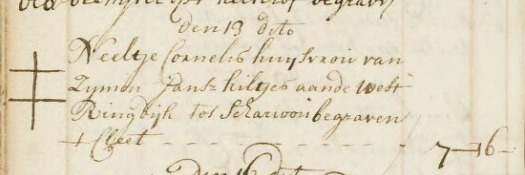 begraven
den 13 dito
Neeltje Cornelis huysvrou van
Zymon Jansz kiltjes aande west
Ringdijk tot Scharwou begraven
+ Cleet - - - - - - - 7-16-